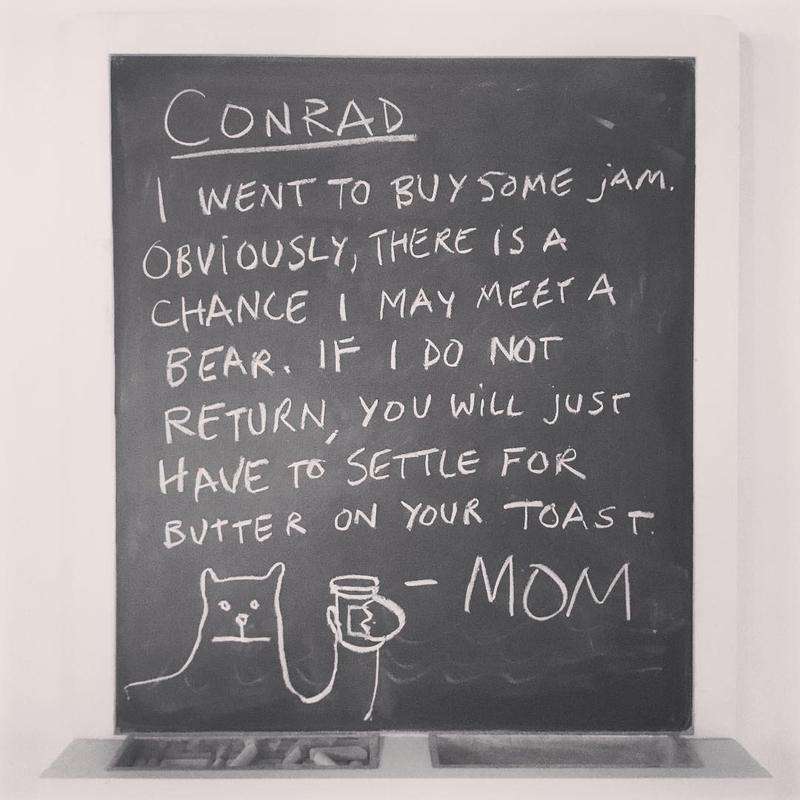 CONRAD
I WENT TO BUY SOME jAM.
OBViOUSLY, THERE IS A
CHANCE I MAY MEET A
BEAR. IF I DO NOT
RETURN, YOU WiLL jUST
HAVE TO SETTLE FOR
BUTTER ON YOUR TOAST.
- MOM